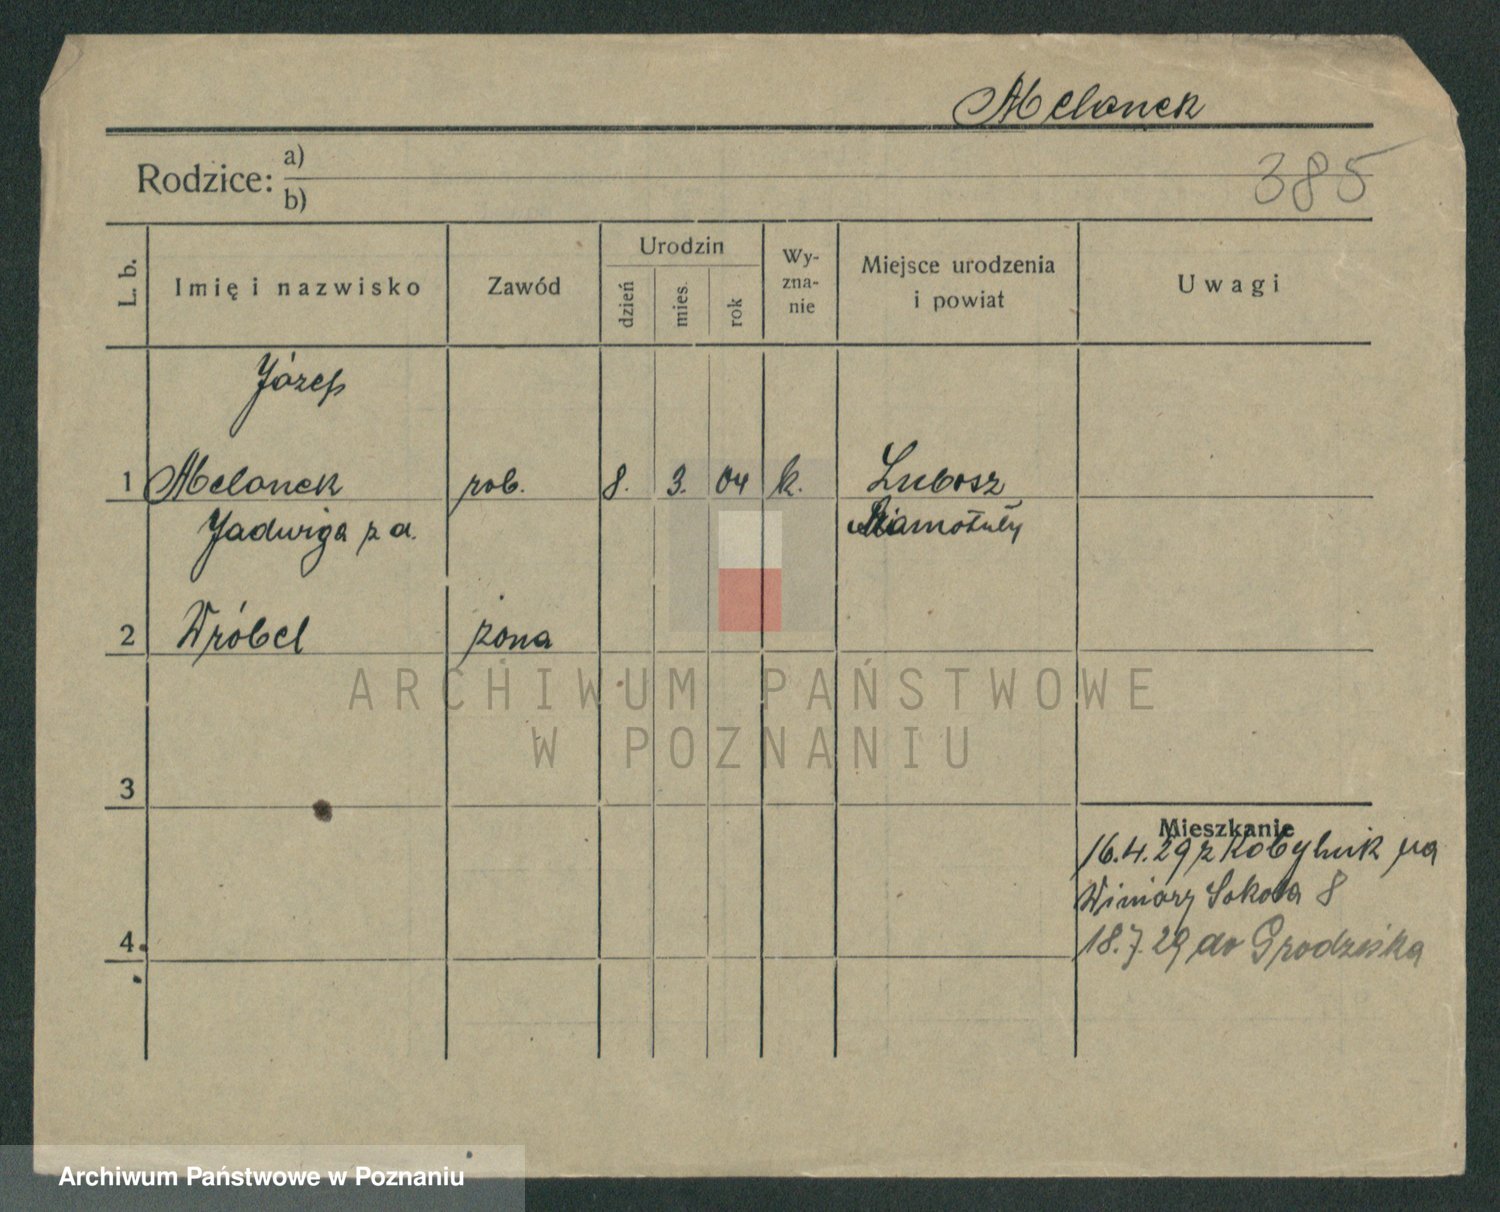 Melonek
385
Rodzice: a)
b)
L. b.
Imię i nazwisko
Zawód
Urodzin
dzień
mies.
rok
Wy-
zna-
nie
Miejsce urodzenia
i powiat
Uwagi
Józef
1 Melonek rob. 8. 3. 04 k. Lubosz
Jadwiga z d. Szamotuły
2 Wróbel żona
ARCHIWUM PAŃSTWOWE
W POZNANIU
3
Mieszkanie
16.4.29 z Kobylnik na
Winiary Sokoła 8
4
18.7.29 do Grodziska
Archiwum Państwowe w Poznaniu